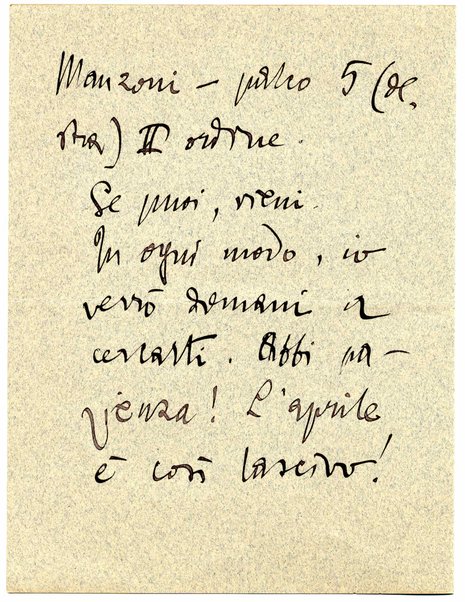 Manzoni – palco 5 (de-
stra) II ordine.
Se puoi, vieni.
In ogni modo, io
verrò domani a
cercarti. Abbi pa-
zienza! L'aprile
è così lascivo!